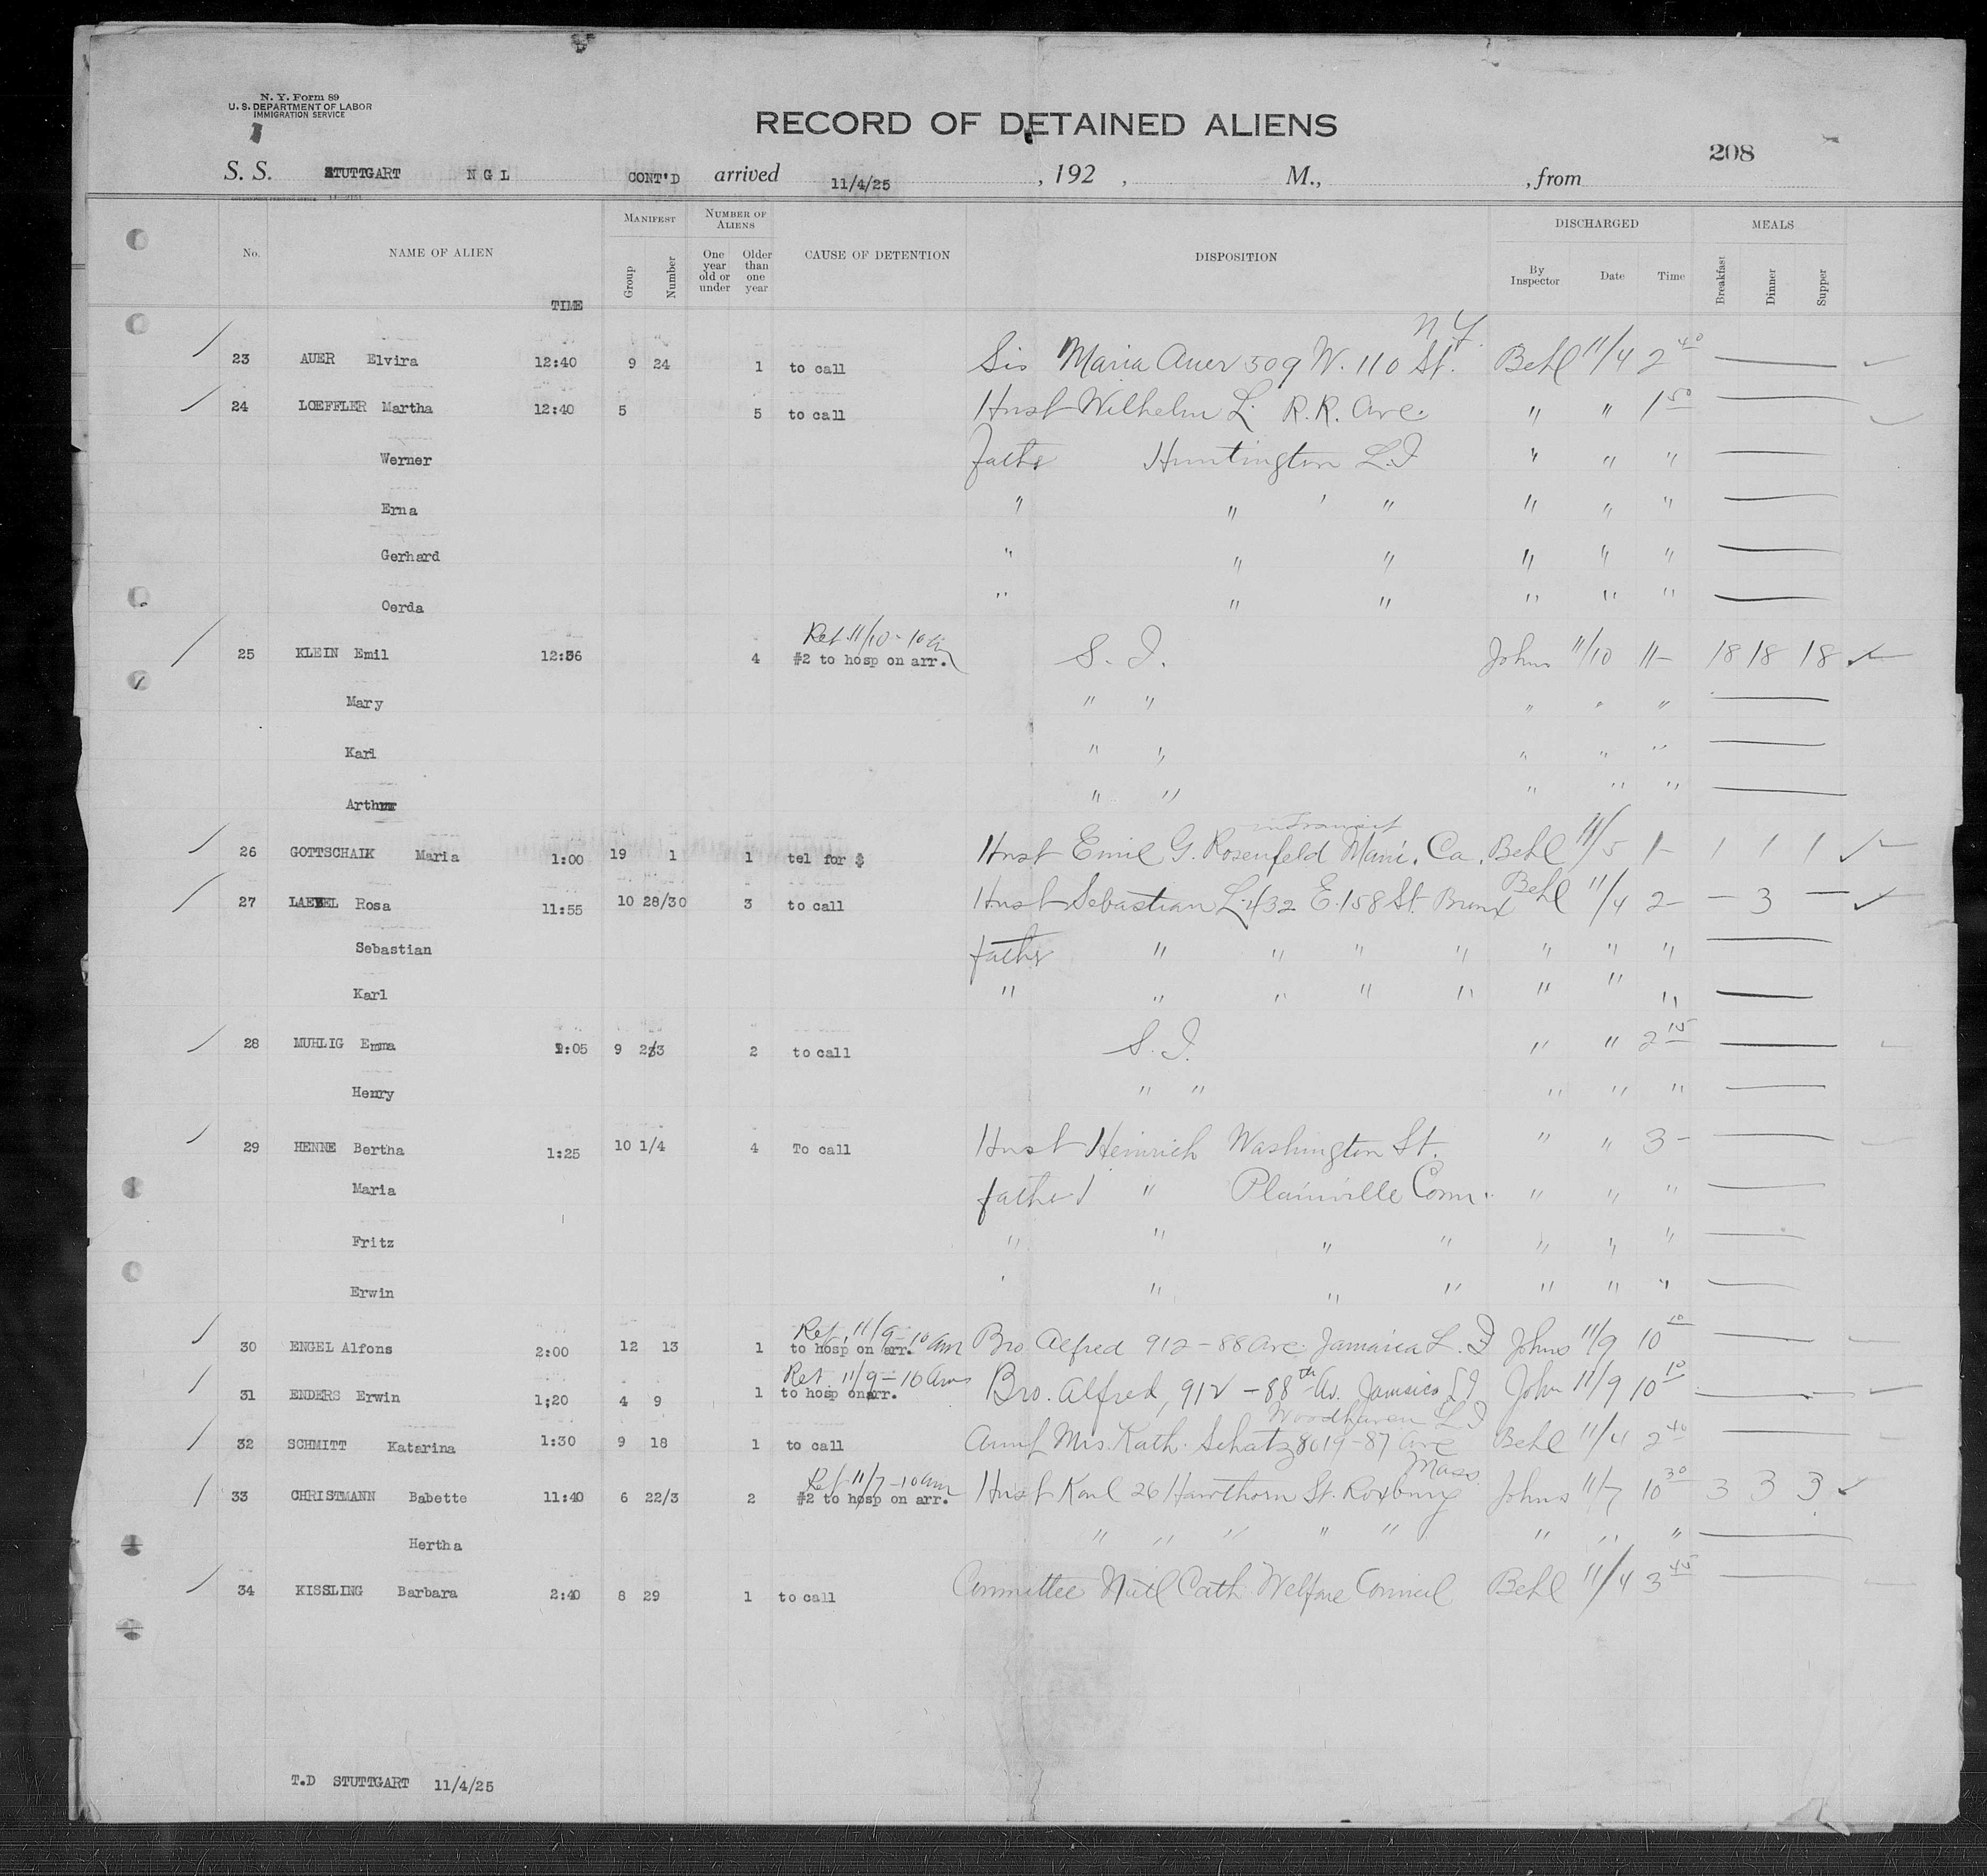 N. Y. Form 89
U. S. DEPARTMENT OF LABOR
IMMIGRATION SERVICE
RECORD OF DETAINED ALIENS
208
S. S. STUTTGART N G L CONT'D arrived 11/4/25 , 192 , M., , from
No. NAME OF ALIEN TIME MANIFEST Group Number NUMBER OF ALIENS One year old or under Older than one year CAUSE OF DETENTION DISPOSITION DISCHARGED By Inspector Date Time MEALS Breakfast Dinner Supper
N.Y.
23 AUER Elvira 12:40 9 24 1 to call Sis Maria Auer 509 W. 110 St. Behl 11/4 2 40
24 LOEFFLER Martha 12:40 5 5 to call Husb Wilhelm L. R.R. Ave. " " 1 50
Werner father Huntington L.I " " "
Erna " " ' " " " "
Gerhard " " " " " "
Oerda " " " " " "
Ret 11/10 - 10 am
25 KLEIN Emil 12:56 4 #2 to hosp on arr. S. I. Johns 11/10 11- 18 18 18
Mary " " " " "
Karl " " " " "
Arthur " " " " "
in transit
26 GOTTSCHAIK Maria 1:00 19 1 1 tel for $ Husb Emil G. Rosenfeld Mani. Ca. Behl 11/5 1- 1 1 1
27 LAEBEL Rosa 11:55 10 28/30 3 to call Husb Sebastian L. 432 E. 158 St. Bronx Behl 11/4 2- - 3 -
Sebastian father " " " " " " "
Karl " " " " " " " "
28 MUHLIG Emma 1:05 9 2/3 2 to call S. I. " " 2 15
Henry " " " " "
29 HENNE Bertha 1:25 10 1/4 4 To call Husb Heinrich Washington St. " " 3-
Maria father " Plainville Conn. " " "
Fritz " " " " " " "
Erwin ' " " " " " "
Ret. 11/9 - 10 am
30 ENGEL Alfons 2:00 12 13 1 to hosp on arr. Bro Alfred 912 - 88 Ave. Jamaica L. I Johns 11/9 10 10
Ret 11/9 - 10 am
31 ENDERS Erwin 1;20 4 9 1 to hosp on arr. Bro. Alfred, 912 - 88th Av. Jamaica LI John 11/9 10 10
Woodhaven L I
32 SCHMITT Katarina 1:30 9 18 1 to call Aunt Mrs. Kath. Schatz 8019 - 87 Ave Behl 11/4 2 40
Ret 11/7 - 10 am Mass
33 CHRISTMANN Babette 11:40 6 22/3 2 #2 to hosp on arr. Husb Karl 26 Hawthorn St. Roxbury Johns 11/7 10 30 3 3 3
Hertha " " " " " " " "
34 KISSLING Barbara 2:40 8 29 1 to call Committee Natl Cath Welfare Council Behl 11/4 3 45
T.D STUTTGART 11/4/25